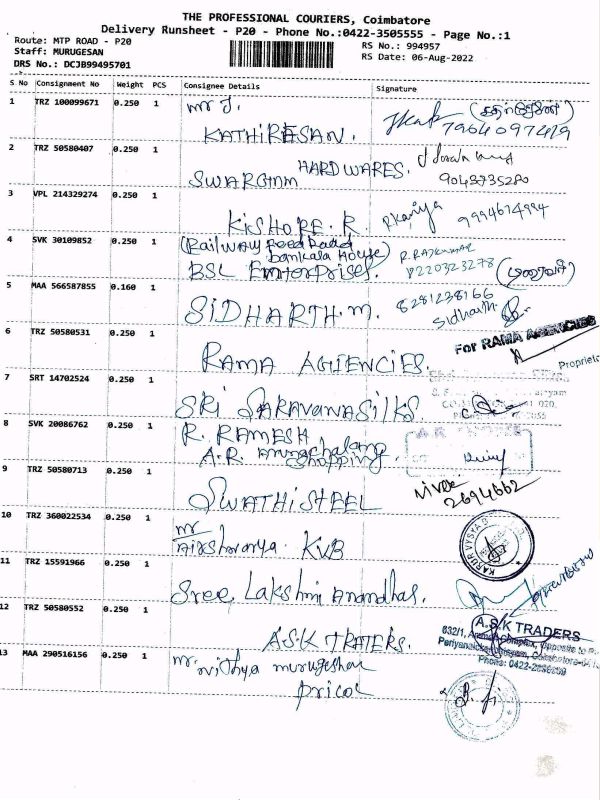 THE PROFESSIONAL COURIERS, Coimbatore
Delivery Runsheet - P20 - Phone No.:0422-3505555 - Page No.:1
Route: MTP ROAD - P20
RS No.: 994957
Staff: MURUGESAN
RS Date: 06-Aug-2022
DRS No.: DCJB99495701
S No Consignment No Weight PCS Consignee Details Signature
1 TRZ 100099671 0.250 1 mr J.
KATHIRESAN. 7964097419
2 TRZ 50580407 0.250 1 HARDWARES.
SWARGAM 9043735280
3 VPL 214329274 0.250 1
KiSHORE.R. 9994674994
4 SVK 30109852 0.250 1 (Railway Feed Road
bankala House) R.RAJKUMAR
BSL Enterprises. 8220323278
5 MAA 566587855 0.160 1 8281238166
SiDHARTH.M. Sidharth
6 TRZ 50580531 0.250 1 For RAMA AGENCIES
RAMA AGIENCIES. Proprietor
7 SRT 14702524 0.250 1
SRI SARAVANASILKS
8 SVK 20086762 0.250 1 R. RAMESH
A.R. Shopping.
9 TRZ 50580713 0.250 1
SWATHI STEEL 2694662
10 TRZ 360022534 0.250 1 mr
KVB
KARUR VYSYA
11 TRZ 15591966 0.250 1
Sree Lakshmi Anandhas.
12 TRZ 50580552 0.250 1 A.S.K TRADERS
A.S.K TRATERS.
13 MAA 290516156 0.250 1 mr.
nithya murugeshan
pricol